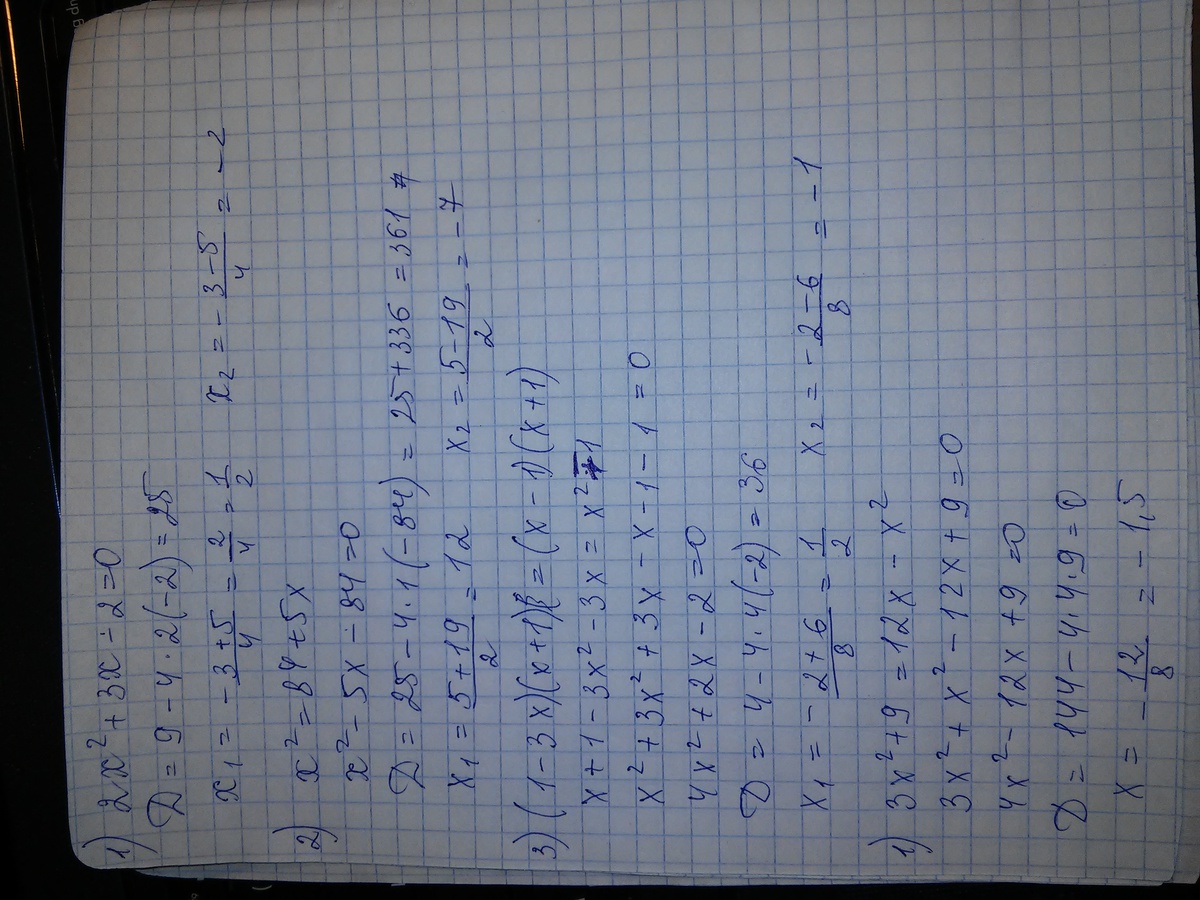 1) 2x² + 3x - 2 = 0
D = 9 - 4 · 2(-2) = 25
x₁ = -3+5/4 = 2/4 = 1/2 x₂ = -3-5/4 = -2
2) x² = 84 + 5x
x² - 5x - 84 = 0
D = 25 - 4 · 1(-84) = 25 + 336 = 361
x₁ = 5+19/2 = 12 x₂ = 5-19/2 = -7
3) (1-3x)(x+1) = (x-1)(x+1)
x + 1 - 3x² - 3x = x² - 1
x² + 3x² + 3x - x - 1 - 1 = 0
4x² + 2x - 2 = 0
D = 4 - 4 · 4(-2) = 36
x₁ = -2+6/8 = 1/2 x₂ = -2-6/8 = -1
1) 3x² + 9 = 12x - x²
3x² + x² - 12x + 9 = 0
4x² - 12x + 9 = 0
D = 144 - 4 · 4 · 9 = 0
x = -12/8 = -1,5